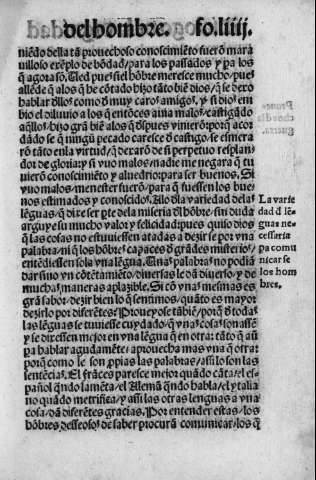 del hombre. fo. liiij.
niẽdo della tã prouechoso conoscimiẽto fuerõ mara
uillosos exẽplo de bõdad/para los passados y pa los
q̃ agora sõ. Ued pues si el hõbre meresce mucho/pues
allẽde q̃ a los q̃ he cõtado hizo tãto biẽ dios/q̃ se dexo
hablar d̃llos como d̃ muy caros amigos/y si dios em
bio el diluuio a los q̃ entõces auia malos/castigãdo
aq̃llos/hizo grã biẽ a los q̃ d̃spues viniesõ: porq̃ acor
dãdo se q̃ ningũ pecado caresce d̃ castigo/se esmera
rõ tãto en la virtud/q̃ dexarõ de si perpetuo resplan/
dor de gloria: y si vuo malos/nadie me negara q̃ tu
uierõ conoscimiẽto y aluedrio: para ser buenos. Si
vuo malos/menester fuerõ/para q̃ fuessen los bue
nos estimados y conoscidos. Allo d̃ la variedad de la s
lẽguas/q̃ dixe ser pte de la miseria d̃l hõbre/sin duda
arguye su mucho valor y felicidad: pues quiso dios
q̃ las cosas no estuuiessen atadas a dezir se por vna
palabra/ni q̃ los hõbres capaces d̃ grãdes misterios/
entẽdiessen sola vna lẽgua. Unas palabras no podiã
dar sino vn cõtẽtamiẽto/diuersas le dã diuerso/y de
muchas maneras aplazible. Si cõ vnas mesmas es
grã sabor/dezir bien lo q̃ sentimos/quãto es mayor
dezirlo por diferẽtes? Proueyo se tãbiẽ/porq̃ d̃ todas
las lẽguas se tuuiesse cuydado/q̃ vnas cosas sonassẽ
y se dixessen mejor en vna lẽgua q̃ en otra: tãto q̃ aũ
pa hablar agudamẽte/aprouecha mas vna q̃ otra:
porq̃ como le son ppias las palabras/assi lo son las
sentẽcias. El frãces paresce mejor quãdo cãta/el es/
pañol quãdo lamẽta/el Alemã qñdo habla/el ytalia
no quãdo metrifica/y assi las otras lenguas a vna
cosa/dã diferẽtes gracias. Por entender estas/los
hõbres desseosos de saber procurã comunicar/los q̃
La varie
dad d̃ lẽ/
guas ne/
cessaria
pa comu
nicar se
los hom
bres.